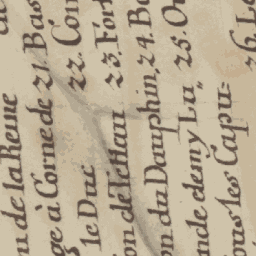 de la Reine
ge à Corne de 21. Bas
le Duc 22. Cor
on de Tettau 23. For
on du Dauphin, 24. Bo
nde demy Lu„ 25. Ou
ous les Capu: 26. Le